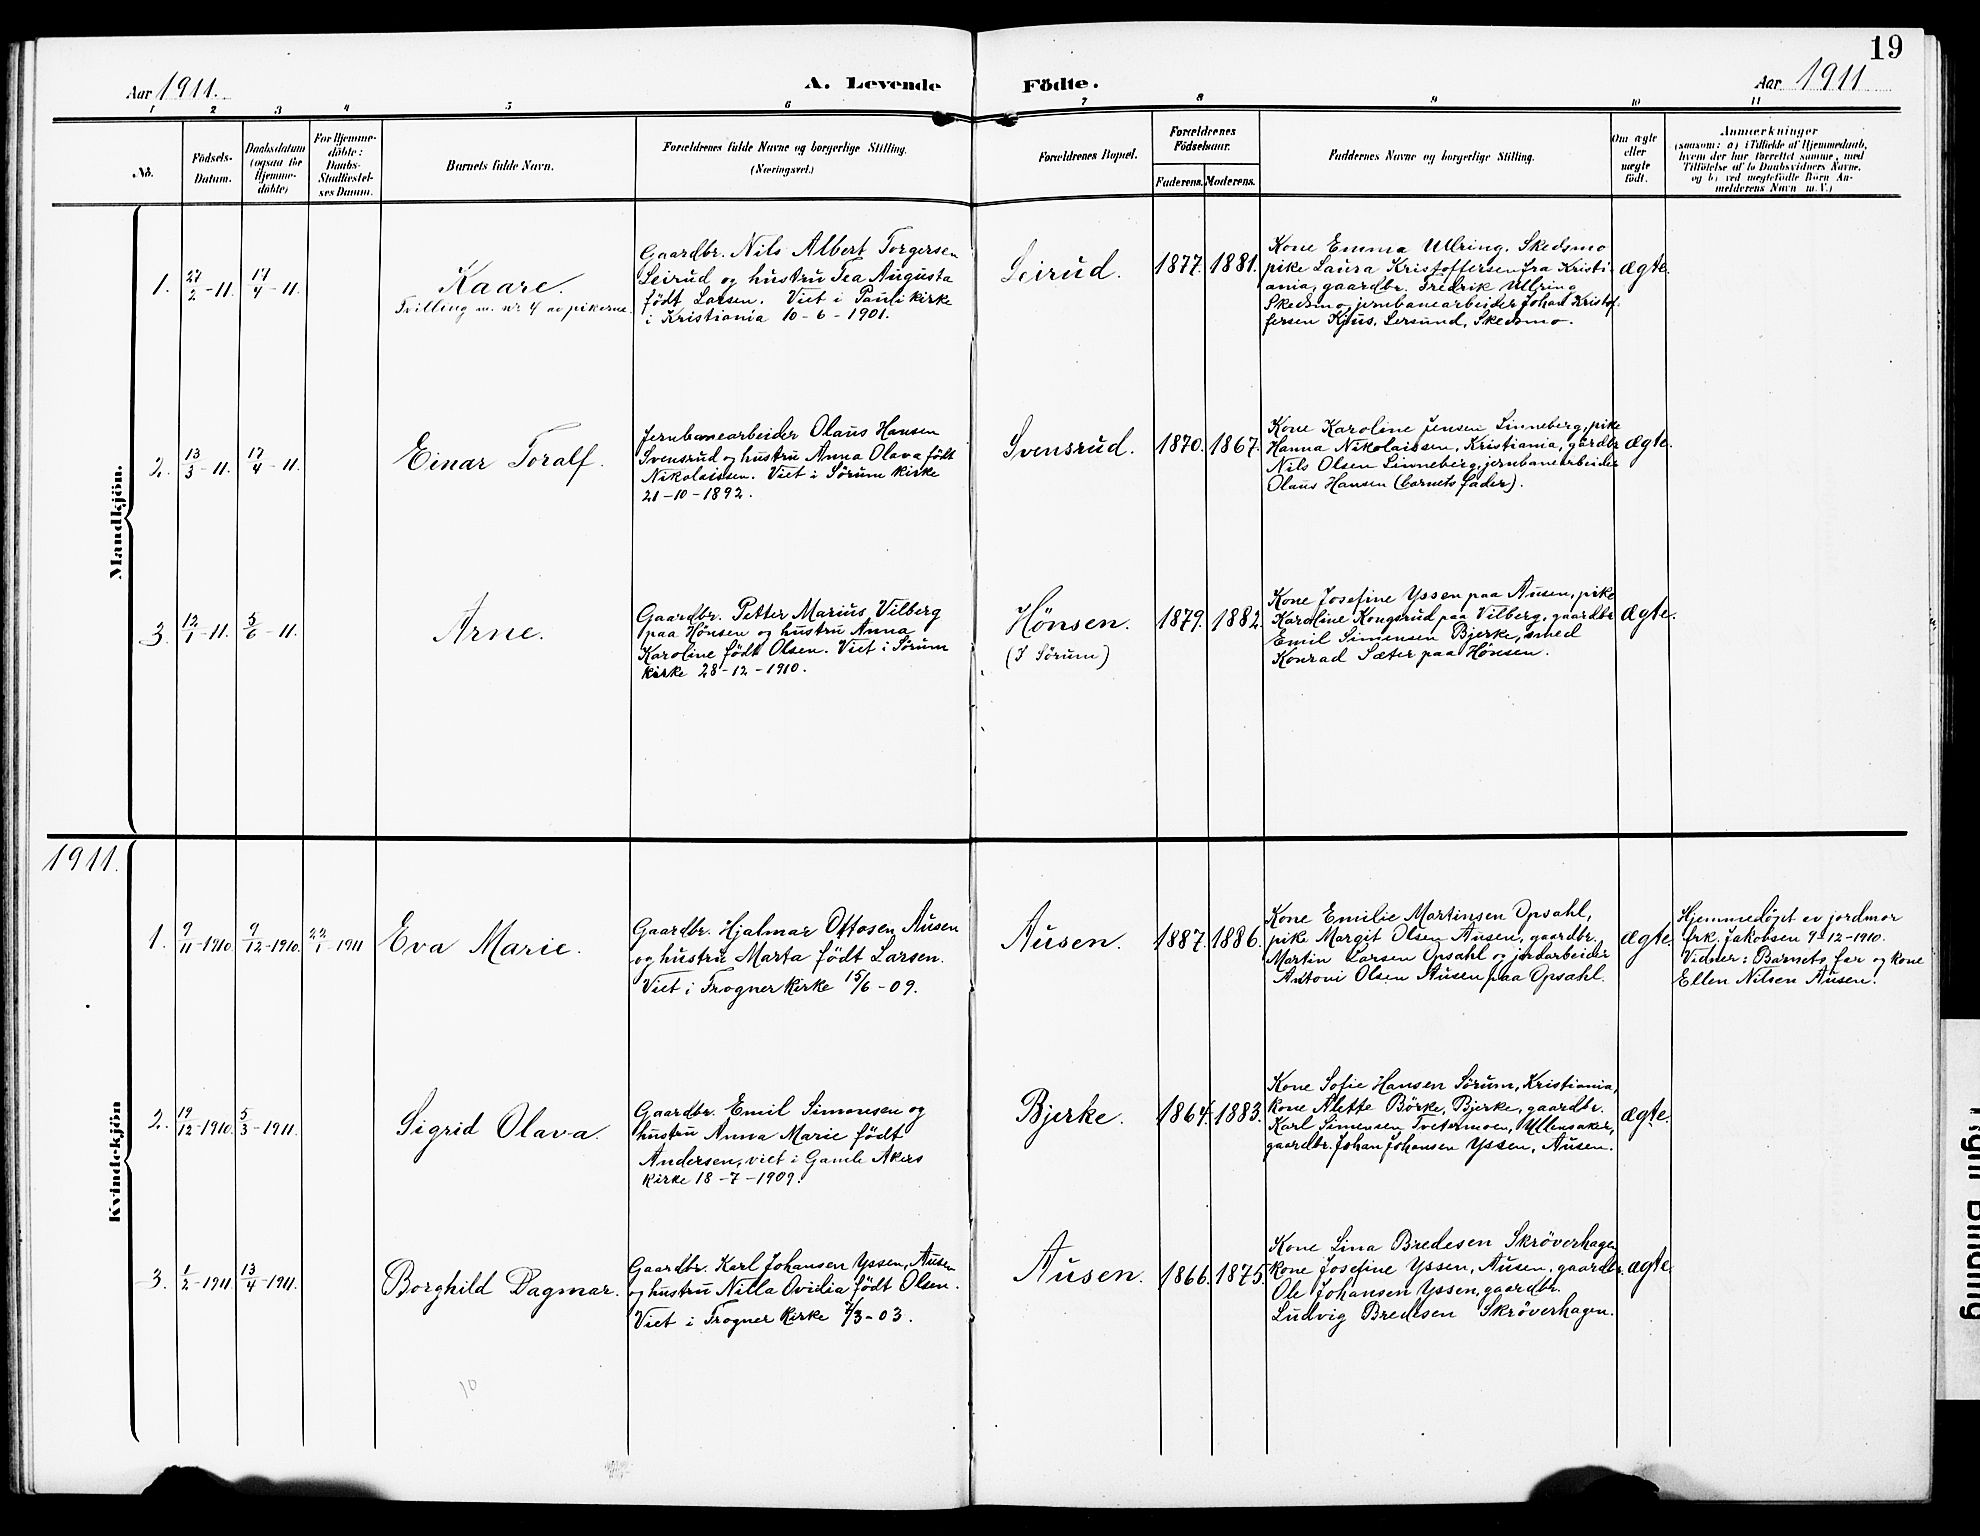 19
Aar 1911.
A. Levende
Födte.
Aar 1911
1 2 3 4 5 6 7 8 9 10 11
No.
Födsels-
Datum.
Daabsdatum
(ogsaa for
Hjemme-
döbte)
For Hjemme-
döbte:
Daabs-
Stadfæstel-
ses Datum.
Barnets fulde Navn.
Forældrenes fulde Navne og borgerlige Stilling.
(Næringsvei.)
Forældrenes Bopæl.
Forældrenes
Födselsaar.
Faderens. Moderens.
Faddernes Navne og borgerlige Stilling.
Om ægte
eller
uægte
födt.
Anmærkninger
(saasom: a) i Tilfælde af Hjemmedaab,
hvem der har forrettet samme, med
Tilföielse af to Daabsvidners Navne,
og b) ved uægtefödte Børn An-
melderens Navn m. V.)
Mandkjön.
1.
27/2 - 11.
17/4 - 11.
Kaare.
Tvilling m. nr. 4 av pikerne.
Gaardbr. Nils Albert Torgersen
Seirud og hustru Tea Augusta
födt Larsen. Viet i Pauli kirke
i Kristiania 10 - 6 - 1901.
Seirud.
1877. 1881.
Kone Emma Ullring. Skedsmo
pike Laura Kristoffersen fra Kristi-
ania, gaardbr. Fredrik Ullring
Skedsmo, jernbanearbeider Johan Kristof-
fersen Kjus, Lersund, Skedsmo.
ægte.
2.
13/3 - 11.
17/4 - 11.
Einar Toralf.
Jernbanearbeider Olaus Hansen
Svensrud og hustru Anna Olava födt
Nikolaissen. Viet i Sörum kirke
21 - 10 - 1892.
Svensrud.
1870. 1867.
Kone Karoline Jensen Linneberg, pike
Hanna Nikolaissen, Kristiania, gardbr.
Nils Olsen Linneberg, jernbanearbeider
Olaus Hansen (barnets fader).
ægte.
3.
12/1 - 11.
5/6 - 11.
Arne.
Gaardbr. Petter Marius Vilberg
paa Hönsen og hustru Anna
Karoline födt Olsen. Viet i Sörum
kirke 28 - 12 - 1910.
Hönsen.
(I Sörum)
1879. 1882.
Kone Josefine Yssen paa Ausen, pike
Karoline Kongsrud paa Vilberg, gaardbr.
Emil Simensen Bjerke, smed
Konrad Sæter paa Hönsen.
ægte.
1911.
Kvindekjön
1.
9/11 - 1910.
9/12 - 1910.
22/1 - 1911
Eva Marie.
Gaardbr. Hjalmar Ottosen Ausen
og hustru Marta födt Larsen.
Viet i Frogner kirke 15/6 - 09.
Ausen.
1887. 1886.
Kone Emilie Martinsen Opsahl,
pike Margit Olsen Ausen, gaardbr.
Martin Larsen Opsahl og jordarbeider
Antoni Olsen Ausen paa Opsahl.
ægte.
Hjemmedöpt av jordmor
frk. Jakobsen 9-12-1910.
Vidner: Barnets far og kone
Ellen Nilsen Ausen.
2.
19/12 - 1910.
5/3 - 1911.
Sigrid Olava.
Gaardbr. Emil Simensen og
hustru Anna Marie födt
Andersen, viet i Gamle Akers
kirke 18 - 7 - 1909.
Bjerke.
1864. 1883.
Kone Sofie Hansen Sörum, Kristiania,
kone Alette Börke, Bjerke, gaardbr.
Karl Simensen Tvetermoen, Ullensaker,
gaardbr. Johan Johansen Yssen, Ausen.
ægte.
3.
1/2 - 1911.
13/4 - 1911.
Borghild Dagmar.
Gaardbr. Karl Johansen Yssen, Ausen
og hustru Nilla Ovidia födt Olsen.
Viet i Frogner kirke /3 - 03.
Ausen.
1866. 1875.
Kone Lina Bredesen Skröverhagen
kone Josefine Yssen, Ausen, gaardbr.
Ole Johansen Yssen, gaardbr.
Ludvig Bredesen Skröverhagen.
ægte.
10